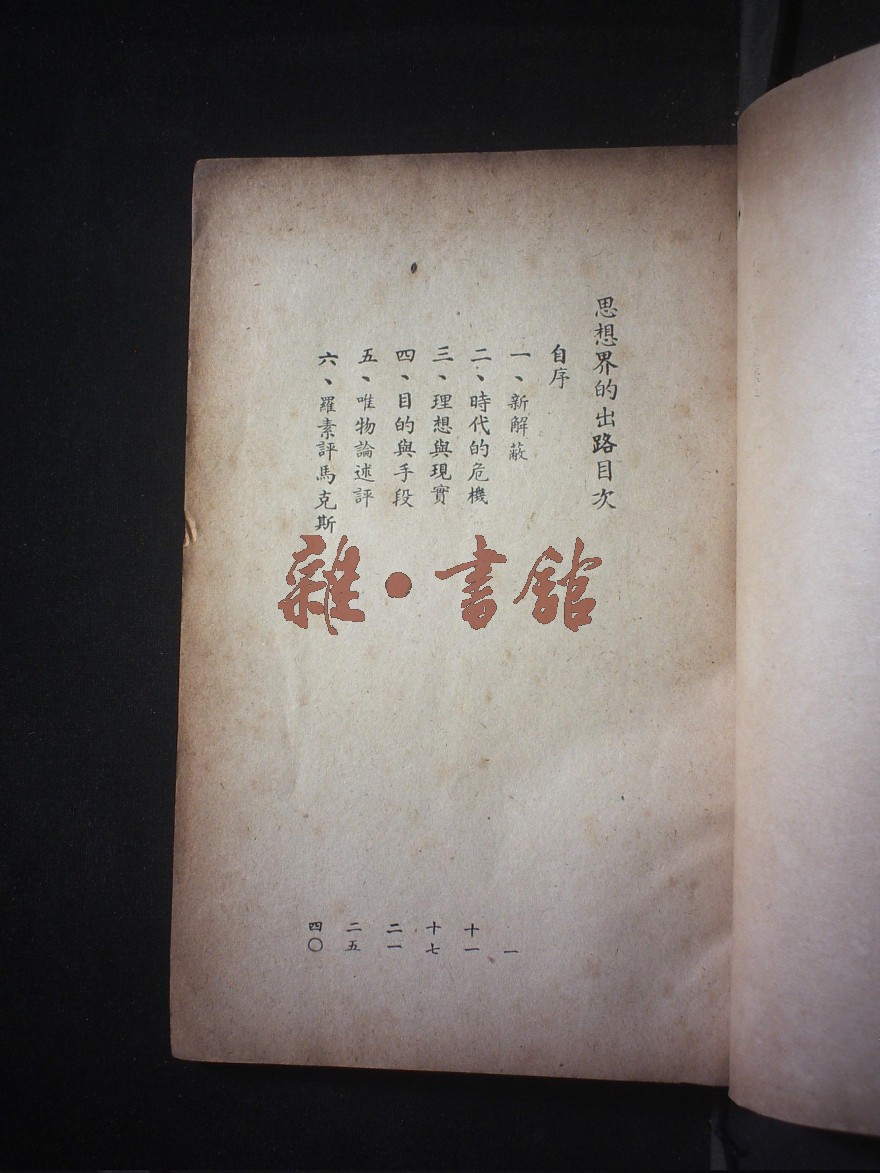 思想界的出路目次
自序
一、新解蔽 一
二、時代的危機 十一
三、理想與現實 十七
四、目的與手段 二一
五、唯物論述評 二五
六、羅素評馬克斯 四〇
雜·書館